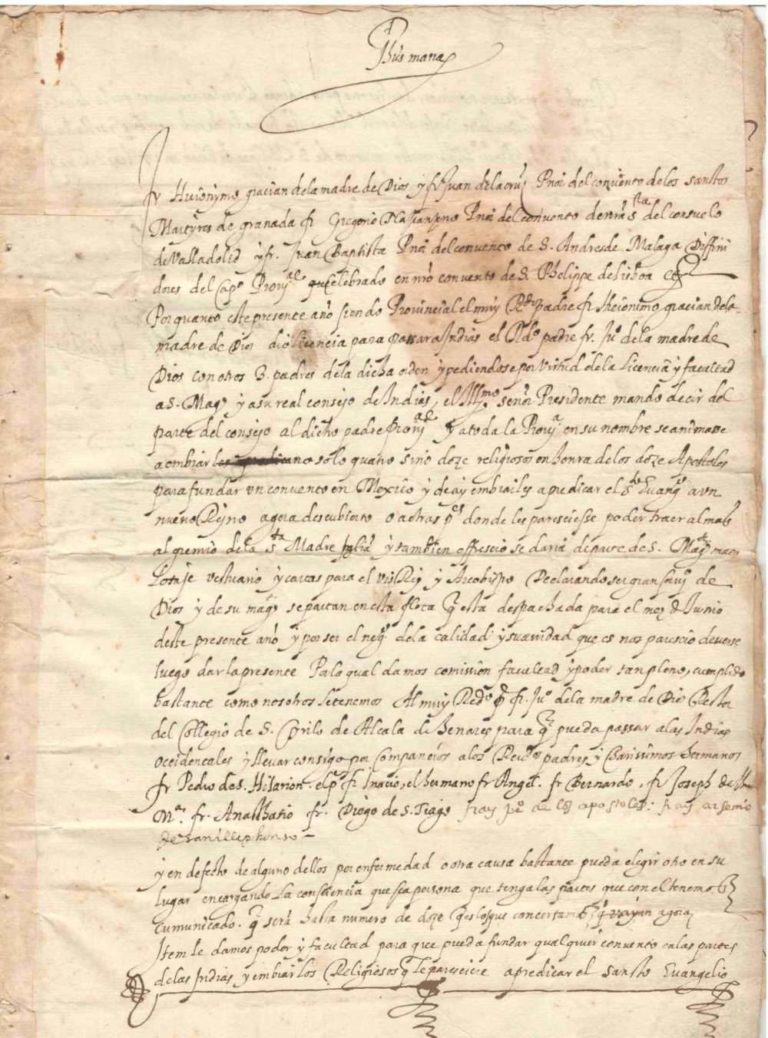 Jhus maria
fr Hieronymo gracian dela madre de Dios y fr Juan dela cruz Pror del convento delos sanctos
Martyres de granada fr Gregorio Nazianzeno Pror del convento de nra sra del consuelo
de Valladolid y fr. Juan Baptista Pror del convento de S. Andres de Malaga Diffini
dores del Capo Provial celebrado en nro convento de S. Phelippe de lisboa
Por quanto este presente año siendo Provincial el muy Rdo padre fr Hieronimo gracian dela
madre de Dios dio licencia para passar a Indias el Rdo padre fr. Juo dela madre de
Dios con otros 3 padres dela dicha orden y pediendose por virtud dela licencia y facultad
a S. Magd y a su real consejo de Indias, el Illmo señor Presidente mando decir del
parte del consejo al dicho padre Provial y a toda la Prova en su nombre se animasse
a embiar no solo quatro sino doze religiosos en honra delos doze Apostoles
para fundar un convento en Mexico y de ay embiarles a predicar el Sto Evango a un
nuevo Reyno agora descubierto o a otras pes donde les paresciesse poder traer almas
al gremio dela Sta Madre Iglia y tambien offrescio se daria de parte de S. Magd mata
lotaje vestuario y cartas para el visRey y Arcobispo Declarando ser gran servo de
Dios y de su magd se partan en esta flota q esta despachada para el mes de Junio
deste presente año y por ser el nego dela calidad y suavidad que es nos parescio deverse
luego dar la presente Por lo qual damos comission facultad y poder tan pleno, cumplido
bastante como nosotros le tenemos Al muy Redo pe fr. Juo dela madre de Dios Rector
del Collegio de S. Cyrilo de Alcala de Henares para q pueda passar alas Indias
Occidentales y llevar consigo por companeros a los Revdos padres y charissimos hermanos
fr Pedro de S. Hilarion, el pe fr Inacio, el hermano fr Angel. fr Bernardo, fr Joseph de
Ma fr. Anastasio fr. Diego de S. Tiago fray po de los apostoles: fray arsenio
de san illephonso
y en defecto de alguno dellos por enfermedad o otra causa bastante pueda elegir otro en su
lugar encargando la consciencia que sea persona que tenga las partes que con el tenemos
cumunicado. q sera hasta numero de doze q es los que concertamos q vayan agora
Item le damos poder y facultad para que pueda fundar qualquier convento en las partes
delas Indias y embiar los Religiosos q le paresciere a predicar el sancto Evangelio